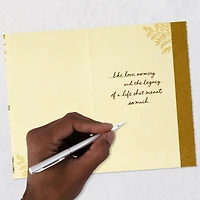 ...the love, memory,
and the legacy
of a life that meant
so much.